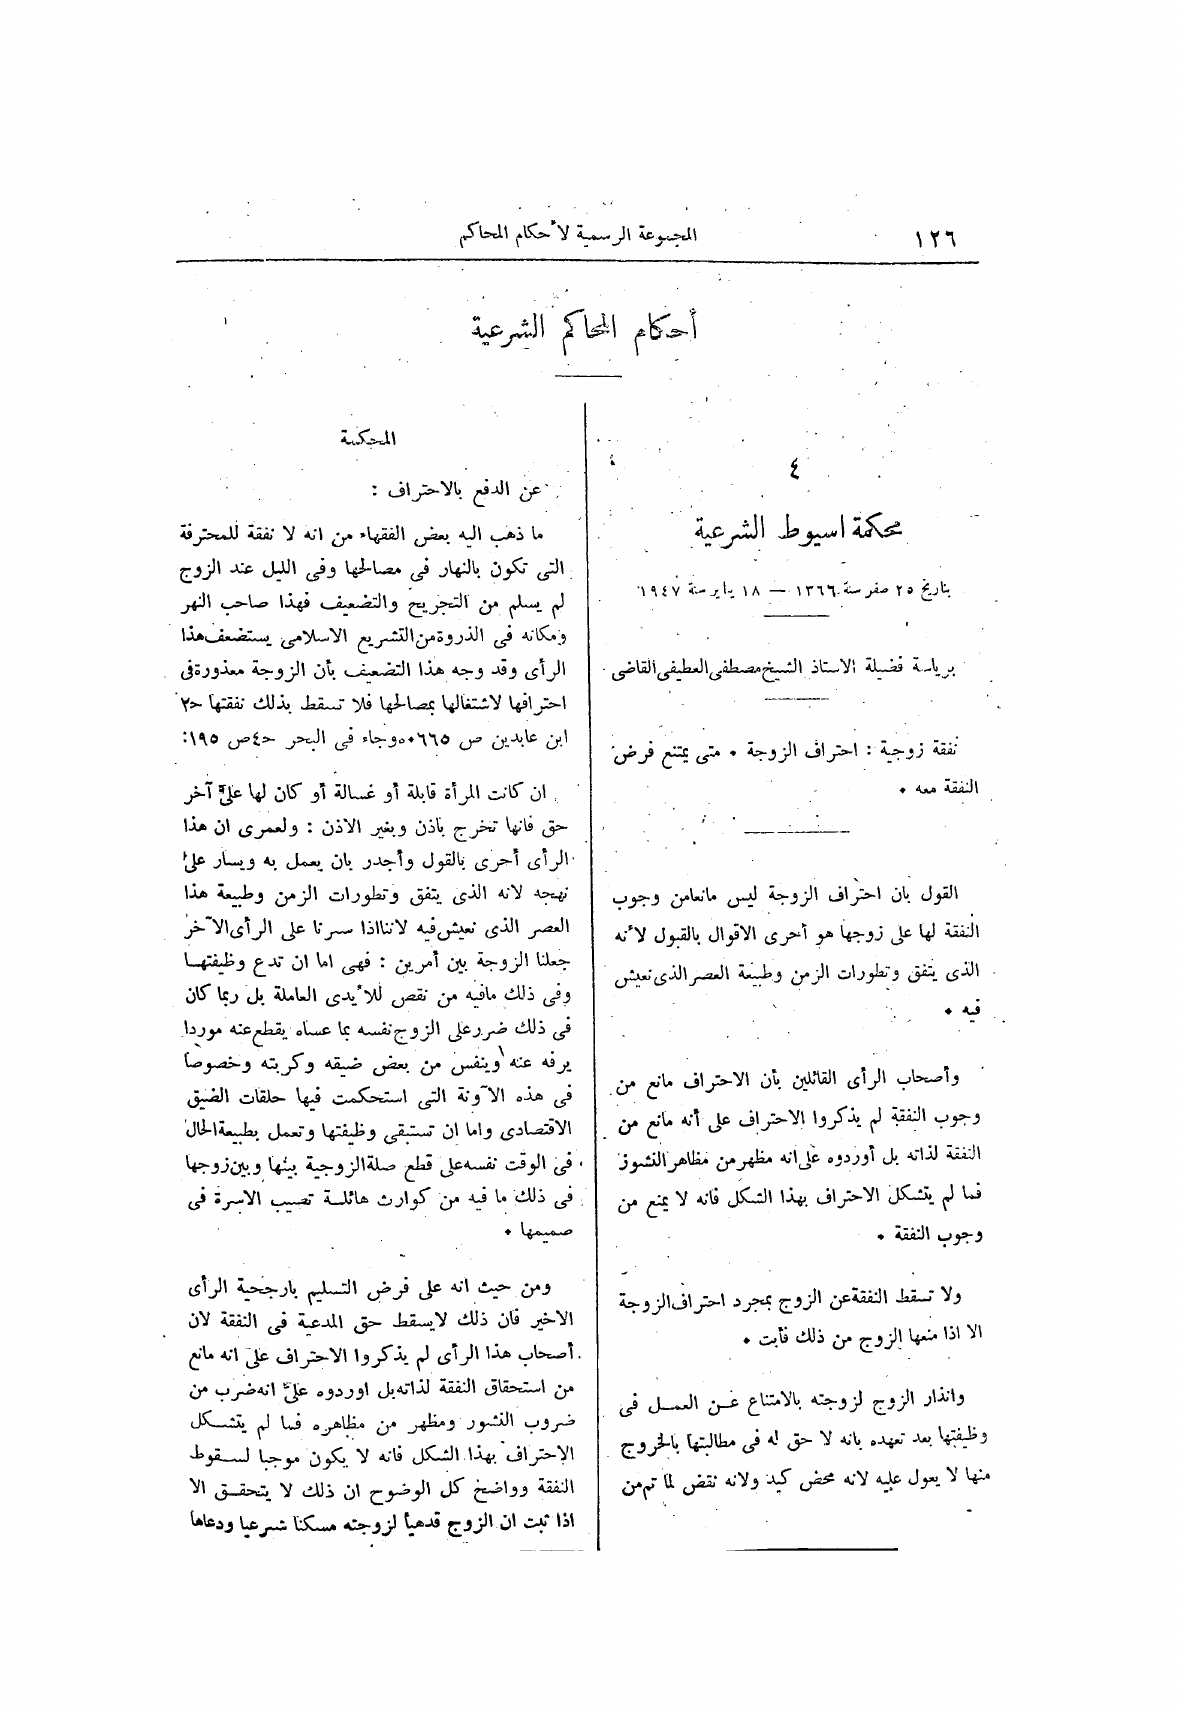 ١٢٦
المجموعة الرسمية لأحكام المحاكم
أحكام المحاكم الشرعية
٤
محكمة اسيوط الشرعية
بتاريخ ٢٥ صفر سنة ١٣٦٦ — ١٨ يناير سنة ١٩٤٧
برياسة فضيلة الاستاذ الشيخ مصطفى العطيفى القاضى
نفقة زوجية : احتراف الزوجة • متى يمتنع فرض
النفقة معه •
القول بان احتراف الزوجة ليس مانعا من وجوب
النفقة لها على زوجها هو أحرى الاقوال بالقبول لأنه
الذى يتفق وتطورات الزمن وطبيعة العصر الذى نعيش
فيه •
وأصحاب الرأى القائلين بأن الاحتراف مانع من
وجوب النفقة لم يذكروا الاحتراف على أنه مانع من
النفقة لذاته بل أوردوه على انه مظهر من مظاهر النشوز
فما لم يتشكل الاحتراف بهذا الشكل فانه لا يمنع من
وجوب النفقة •
ولا تسقط النفقة عن الزوج بمجرد احتراف الزوجة
الا اذا منعها الزوج من ذلك فأبت •
وانذار الزوج لزوجته بالامتناع عن العمل فى
وظيفتها بعد تعهده بانه لا حق له فى مطالبتها بالخروج
منها لا يعول عليه لانه محض كيد ولانه نقض لما تم من
المحكمة
عن الدفع بالاحتراف :
ما ذهب اليه بعض الفقهاء من انه لا نفقة للمحترفة
التى تكون بالنهار فى مصالحها وفى الليل عند الزوج
لم يسلم من التجريح والتضعيف فهذا صاحب النهر
ومكانه فى الذروة من التشريع الاسلامى يستضعف هذا
الرأى وقد وجه هذا التضعيف بأن الزوجة معذورة فى
احترافها لاشتغالها بمصالحها فلا تسقط بذلك نفقتها ح٢
ابن عابدين ص ٦٦٥ • وجاء فى البحر ح٤ ص ١٩٥ :
ان كانت المرأة قابلة أو غسالة أو كان لها على آخر
حق فانها تخرج باذن وبغير الاذن : ولعمرى ان هذا
الرأى أحرى بالقول وأجدر بان يعمل به ويسار على
نهجه لانه الذى يتفق وتطورات الزمن وطبيعة هذا
العصر الذى نعيش فيه لاننا اذا سرنا على الرأى الآخر
جعلنا الزوجة بين أمرين : فهى اما ان تدع وظيفتهـا
وفى ذلك مافيه من نقص للأيدى العاملة بل ربما كان
فى ذلك ضرر على الزوج نفسه بما عساه يقطع عنه موردا
يرفه عنه وينفس من بعض ضيقه وكربته وخصوصا
فى هذه الآونة التى استحكمت فيها حلقات الضيق
الاقتصادى واما ان تستبقى وظيفتها وتعمل بطبيعة الحال
فى الوقت نفسه على قطع صلة الزوجية بينها وبين زوجها
فى ذلك ما فيه من كوارث هائلـة تصيب الاسرة فى
صميمها •
ومن حيث انه على فرض التسليم بارجحية الرأى
الاخير فان ذلك لايسقط حق المدعية فى النفقة لان
أصحاب هذا الرأى لم يذكروا الاحتراف على انه مانع
من استحقاق النفقة لذاته بل اوردوه على انه ضرب من
ضروب النشور ومظهر من مظاهره فما لم يتشـكل
الاحتراف بهذا الشكل فانه لا يكون موجبا لسـقوط
النفقة وواضح كل الوضوح ان ذلك لا يتحقـق الا
اذا ثبت ان الزوج قدهيأ لزوجته مسكنا شرعيا ودعاها